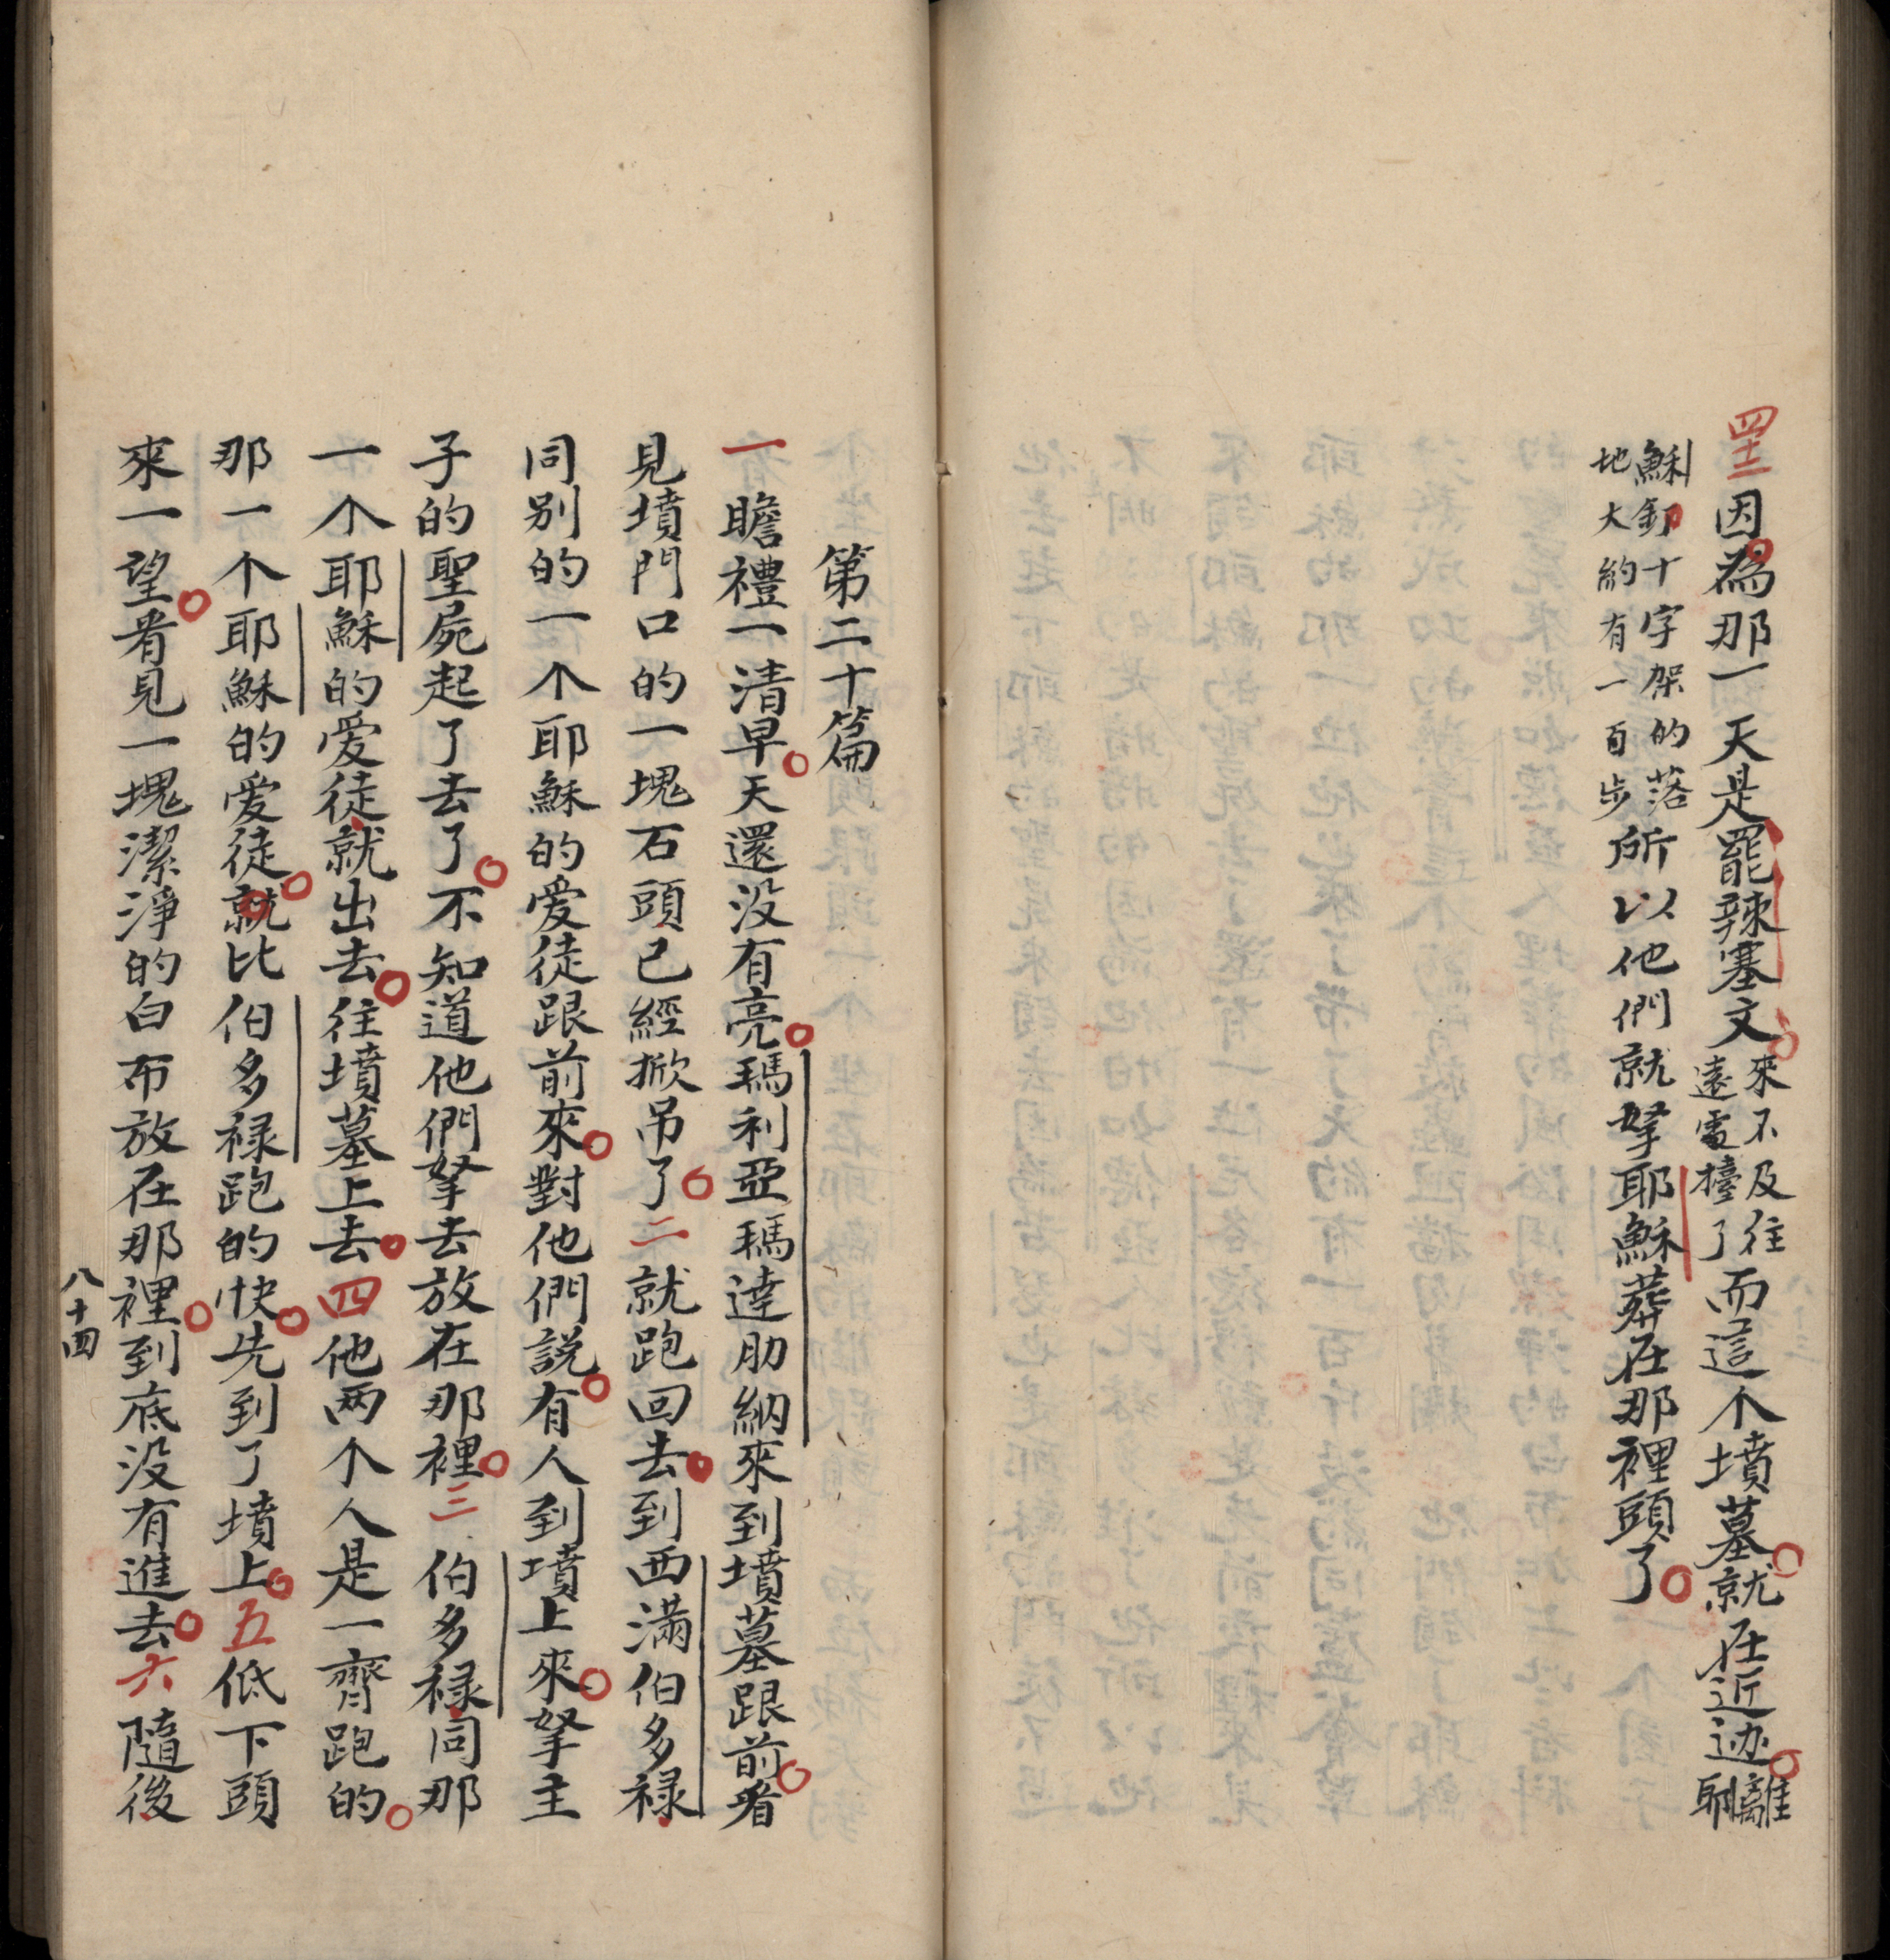 四十二因為那一天是罷辣塞文來不及往遠處擡了而這个墳墓就在近边離耶
穌釘十字架的落地大約有一百步所以他們就拏耶穌葬在那裡頭了
第二十篇
一瞻禮一清早天還没有亮瑪利亞瑪達肋納來到墳墓跟前看
見墳門口的一塊石頭已經掀吊了二就跑回去到西满伯多禄
同別的一个耶穌的爱徒跟前來對他們説有人到墳上來拏主
子的聖屍起了去了不知道他們拏去放在那裡三伯多禄同那
一个耶穌的爱徒就出去往墳墓上去四他两个人是一齊跑的
那一个耶穌的爱徒就比伯多禄跑的快先到了墳上五低下頭
來一望看見一塊潔淨的白布放在那裡到底没有進去六隨後
八十四